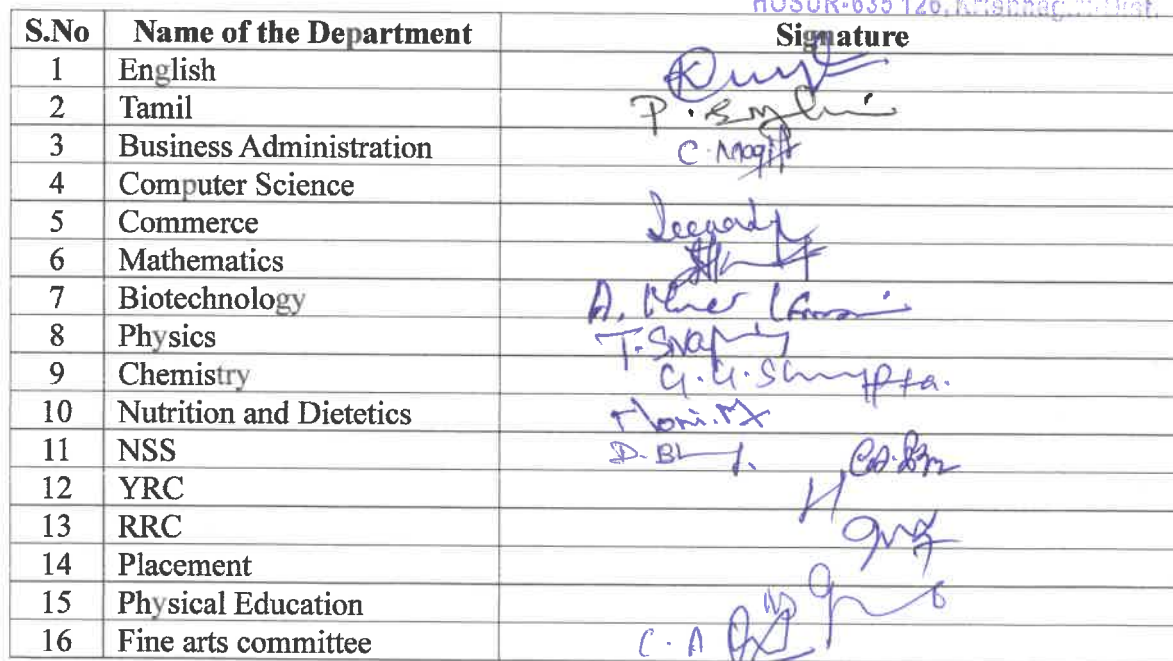 HOSUR-635 126, Krishnagiri Dist.
S.No Name of the Department Signature
1 English
2 Tamil P.
3 Business Administration C.
4 Computer Science
5 Commerce
6 Mathematics
7 Biotechnology A.
8 Physics T.
9 Chemistry G.G.
10 Nutrition and Dietetics
11 NSS D.
12 YRC
13 RRC
14 Placement
15 Physical Education
16 Fine arts committee C. A